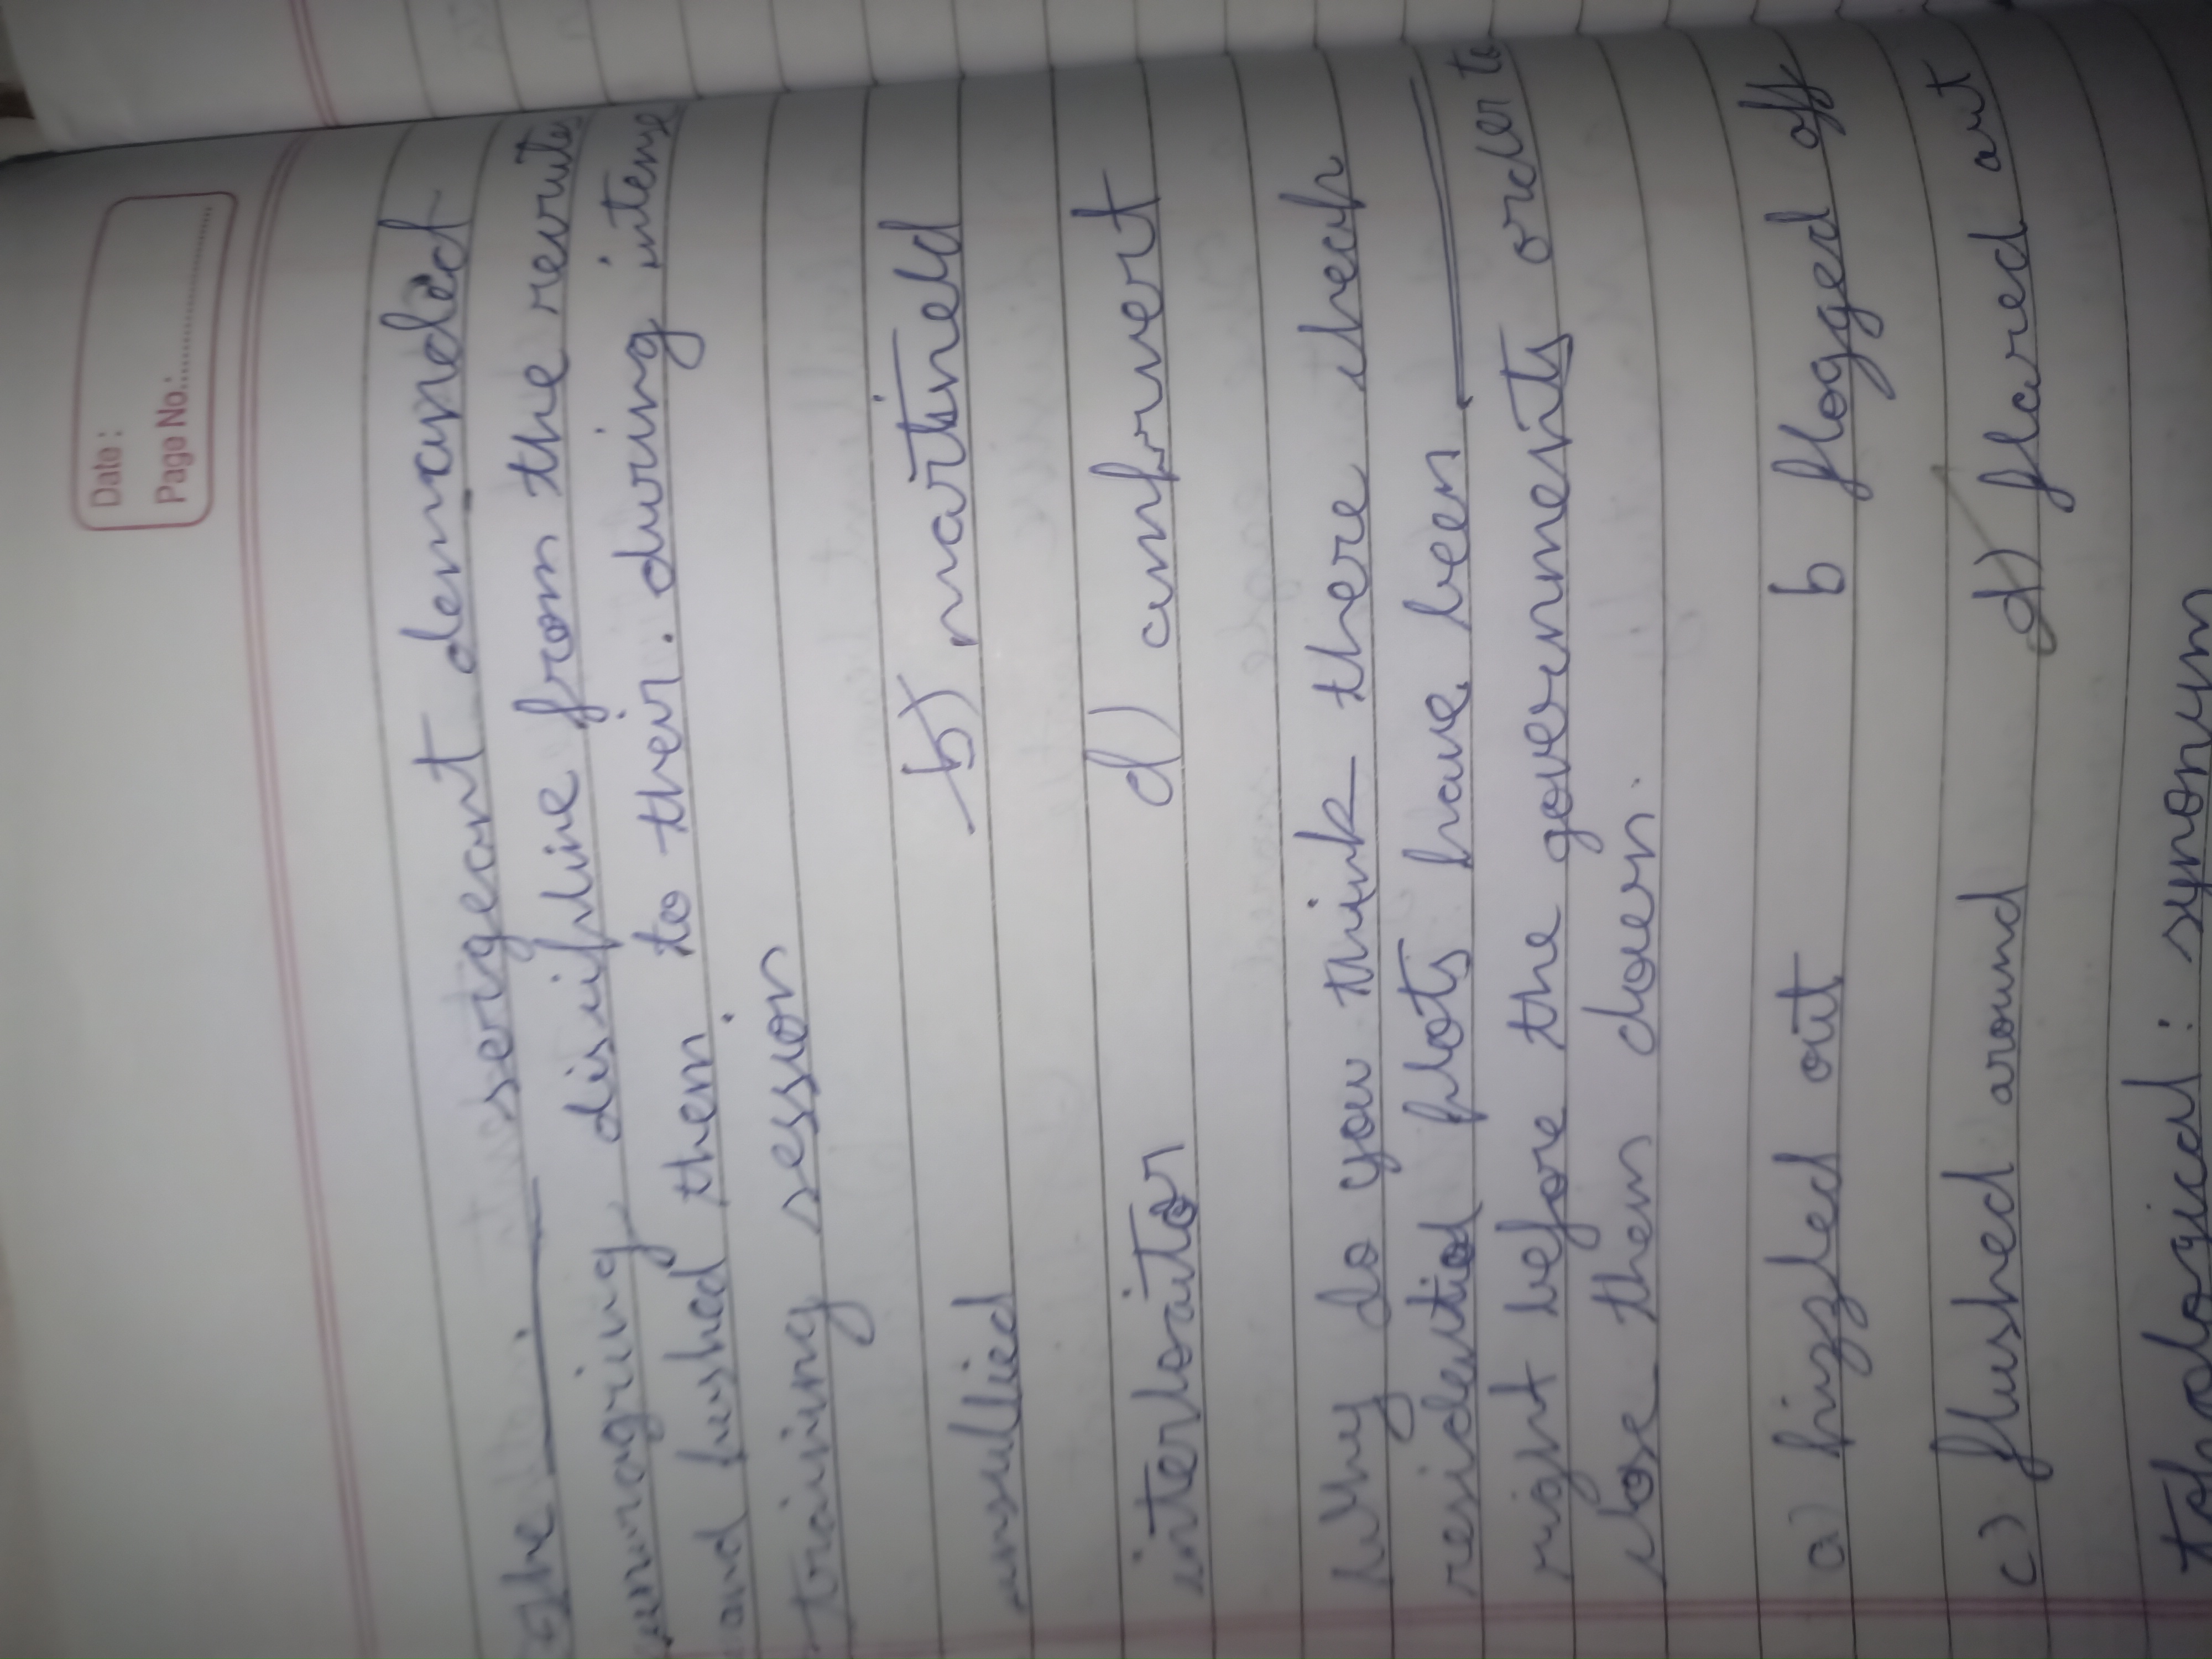 Date :
Page No.:
The sergeant demanded
disipline from the recruits
and pushed them to their. during intense
training session
unsullied b) martineld
interlocutor d)
Why do you think there cheap
residential plots have been
right before the governments order to
close them down.
a) fizzled out b flogged off
c) flushed around d) flared out
synonym